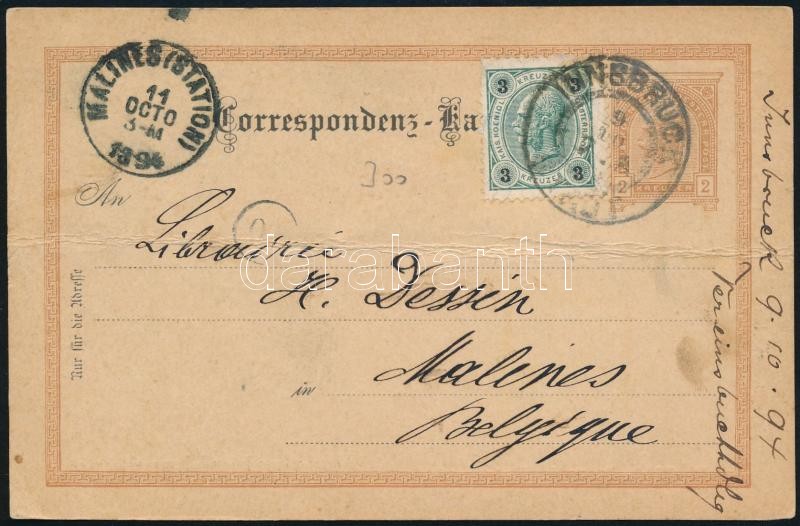 MALINES (STATION)
11
OCTO
1894
Correspondenz-Ka
3 KREUZER 3
KAIS. KOENIGL. OESTERR.
3 KREUZER 3
INNSBRUCK
9
2
KREUZER
300
An
Librairie
H. Dessin
in Malines
Belgique
Nur für die Adresse
Innsbruck 9.10.94
Vereinsbuchhdlg
darabanth